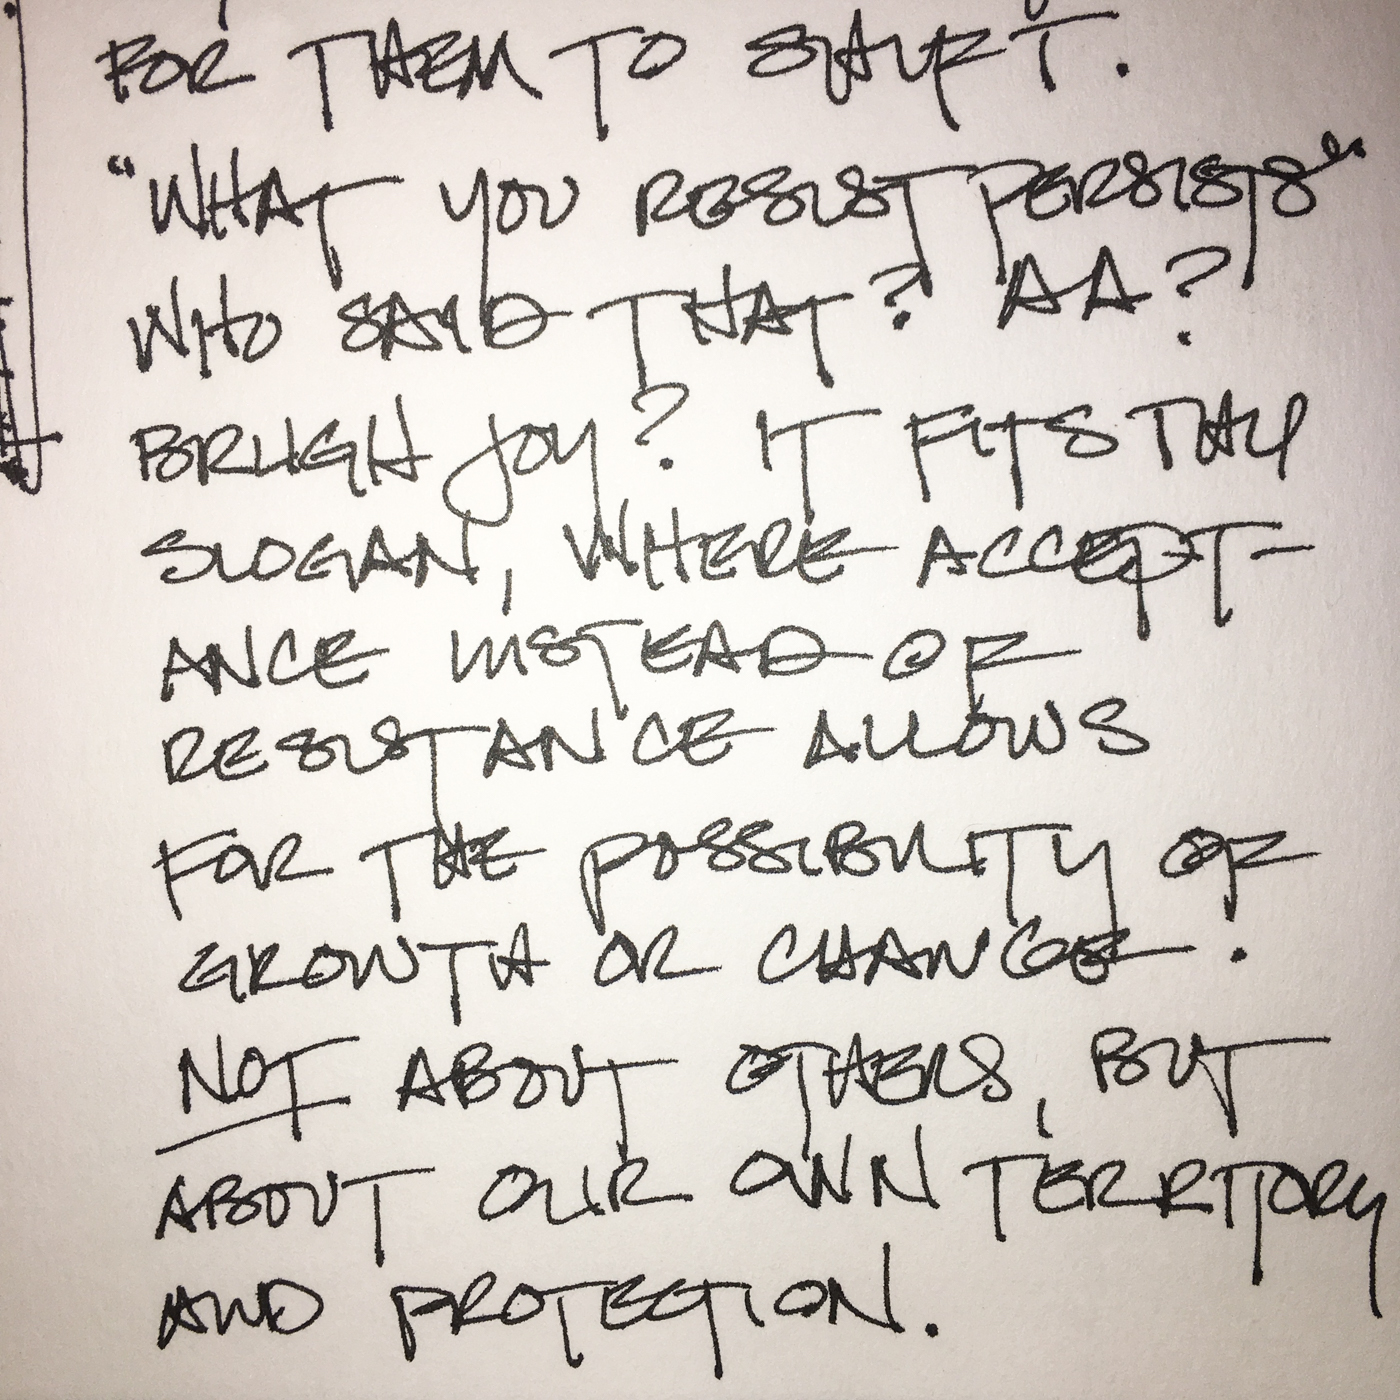 FOR THEM TO START.
"WHAT YOU RESIST PERSISTS"
WHO SAID THAT? AA?
BRUGH JOY? IT FITS
SLOGAN, WHERE ACCEPT-
ANCE INSTEAD OF
RESISTANCE ALLOWS
FOR THE POSSIBILITY OF
GROWTH OR CHANGE.
NOT ABOUT OTHERS, BUT
ABOUT OUR OWN TERRITORY
AND PROTECTION.